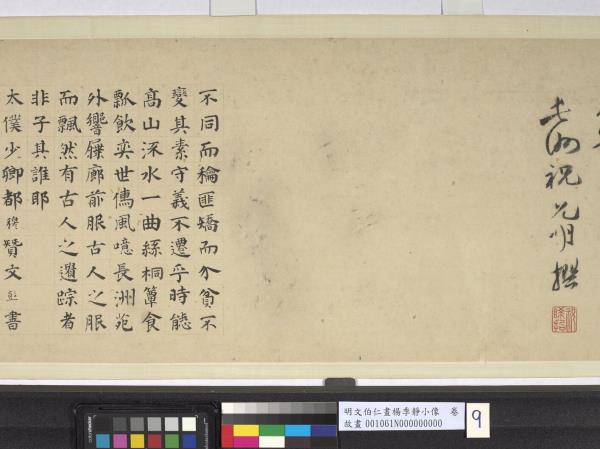 長洲祝允明撰
不同而匪矯而介貧不
變其素守義不遷乎時態
高山流水一曲絲桐簞食
瓢飲奕世儒風噫長洲苑
外響屧廊前服古人之服
而飄然有古人之遺踪者
非子其誰耶
太僕少卿都穆贊文書
明文伯仁畫楊季靜小像 卷
故畫 001061N000000000
9